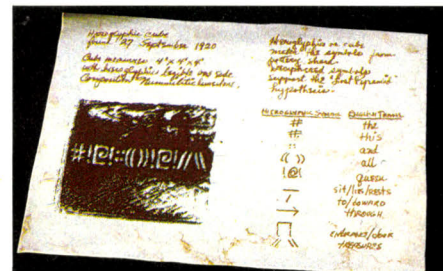 Hieroglyphic cube
found 27 September 1920
Cube measures 4"x 4"x 4"
with hieroglyphics legible one side
Composition: Nummulitic limestone.
#!|@|::(())!|@!//\\
Hieroglyphics on cube
match the symbols from
pottery shard.
symbols
support the "first Pyramid"
hypothesis.
HIEROGLYPHIC SYMBOL ENGLISH TRANS.
# the
# this
:: and
(( )) all
!@! queen
— sit/lies/rests
/ to/toward
→ through
entrance/door
// \\ treasures